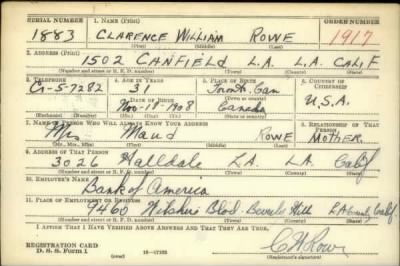 SERIAL NUMBER 1. NAME (Print) ORDER NUMBER
1883 CLARENCE WILLIAM ROWE 1917
(First) (Middle) (Last)
2. ADDRESS (Print)
1502 CANFIELD L.A. L.A. CALIF
(Number and street or R. F. D. number) (Town) (County) (State)
3. TELEPHONE 4. AGE IN YEARS 5. PLACE OF BIRTH 6. COUNTRY OF CITIZENSHIP
Cr-5-7282 31 Toronto, Can
DATE OF BIRTH (Town or county)
Nov-15-1908 Canada U.S.A.
(Exchange) (Number) (Mo.) (Day) (Yr.) (State or country)
7. NAME OF PERSON WHO WILL ALWAYS KNOW YOUR ADDRESS 8. RELATIONSHIP OF THAT PERSON
Mrs Maud ROWE MOTHER.
(Mr., Mrs., Miss) (First) (Middle) (Last)
9. ADDRESS OF THAT PERSON
3026 Halldale LA. LA. Calif
(Number and street or R. F. D. number) (Town) (County) (State)
10. EMPLOYER'S NAME
Bank of America
11. PLACE OF EMPLOYMENT OR BUSINESS
9460 Wilshire Blvd. Beverly Hill LA County, Calif.
(Number and street or R. F. D. number) (Town) (County) (State)
I AFFIRM THAT I HAVE VERIFIED ABOVE ANSWERS AND THAT THEY ARE TRUE.
REGISTRATION CARD C W Rowe
D. S. S. Form 1 (Registrant's signature)